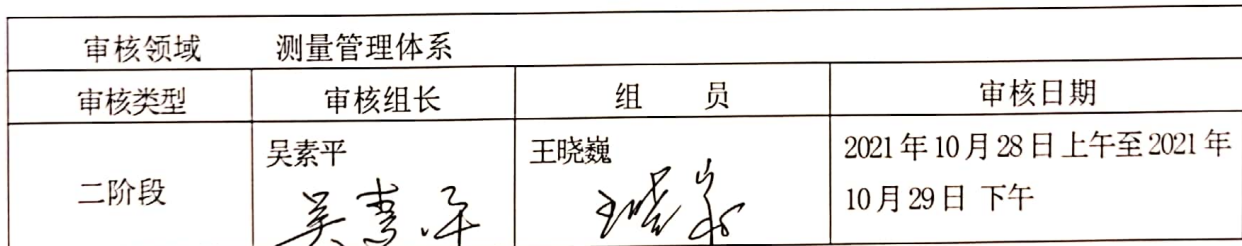 审核领域 测量管理体系
审核类型 审核组长 组 员 审核日期
二阶段
吴素平
吴素平
王晓巍
王晓巍
2021年10月28日上午至2021年
10月29日 下午